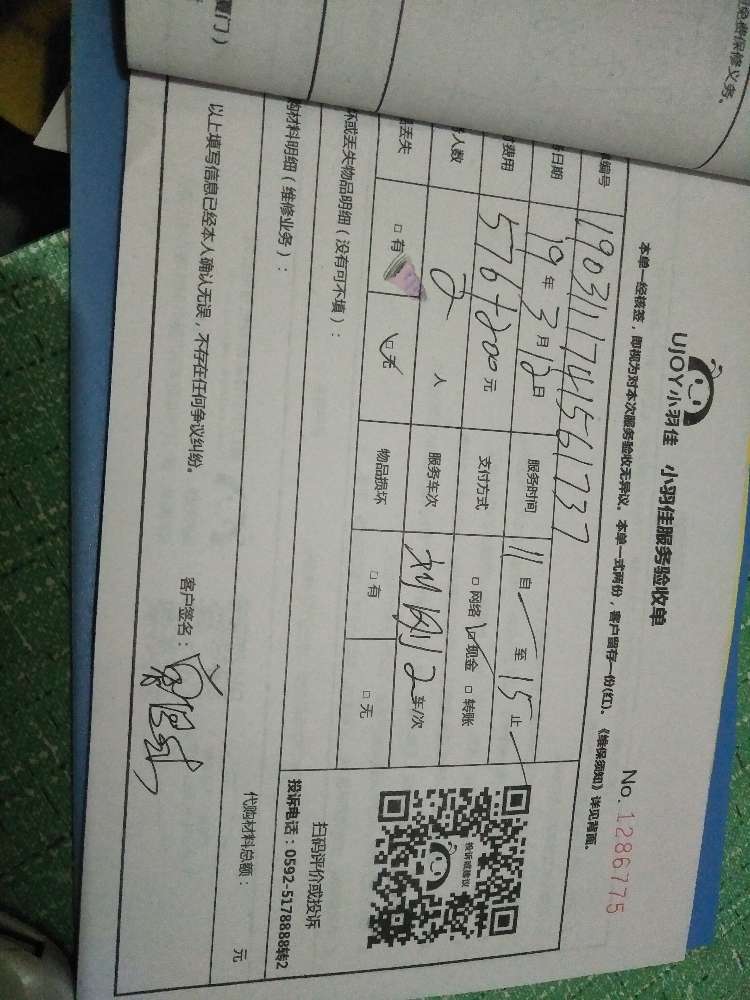 免费保修义务。
厦门）
UJOY小羽佳 小羽佳服务验收单
No. 1286775
本单一经核签，即视为对本次服务验收无异议。本单一式两份，客户留存一份(红)。《维保须知》详见背面。
编号 1903111741561737
日期 19年3月12日 服务时间 11自 至 15止
费用 576+200元 支付方式 □网络 ☑现金 □转账
人数 2人 服务车次 2车/次
丢失 □有 ☑无 物品损坏 □有 □无
坏或丢失物品明细（没有可不填）：
购材料明细（维修业务）：
投诉或建议
扫码评价或投诉
投诉电话：0592-5178888转2
代购材料总额： 元
以上填写信息已经本人确认无误，不存在任何争议纠纷。
客户签名：